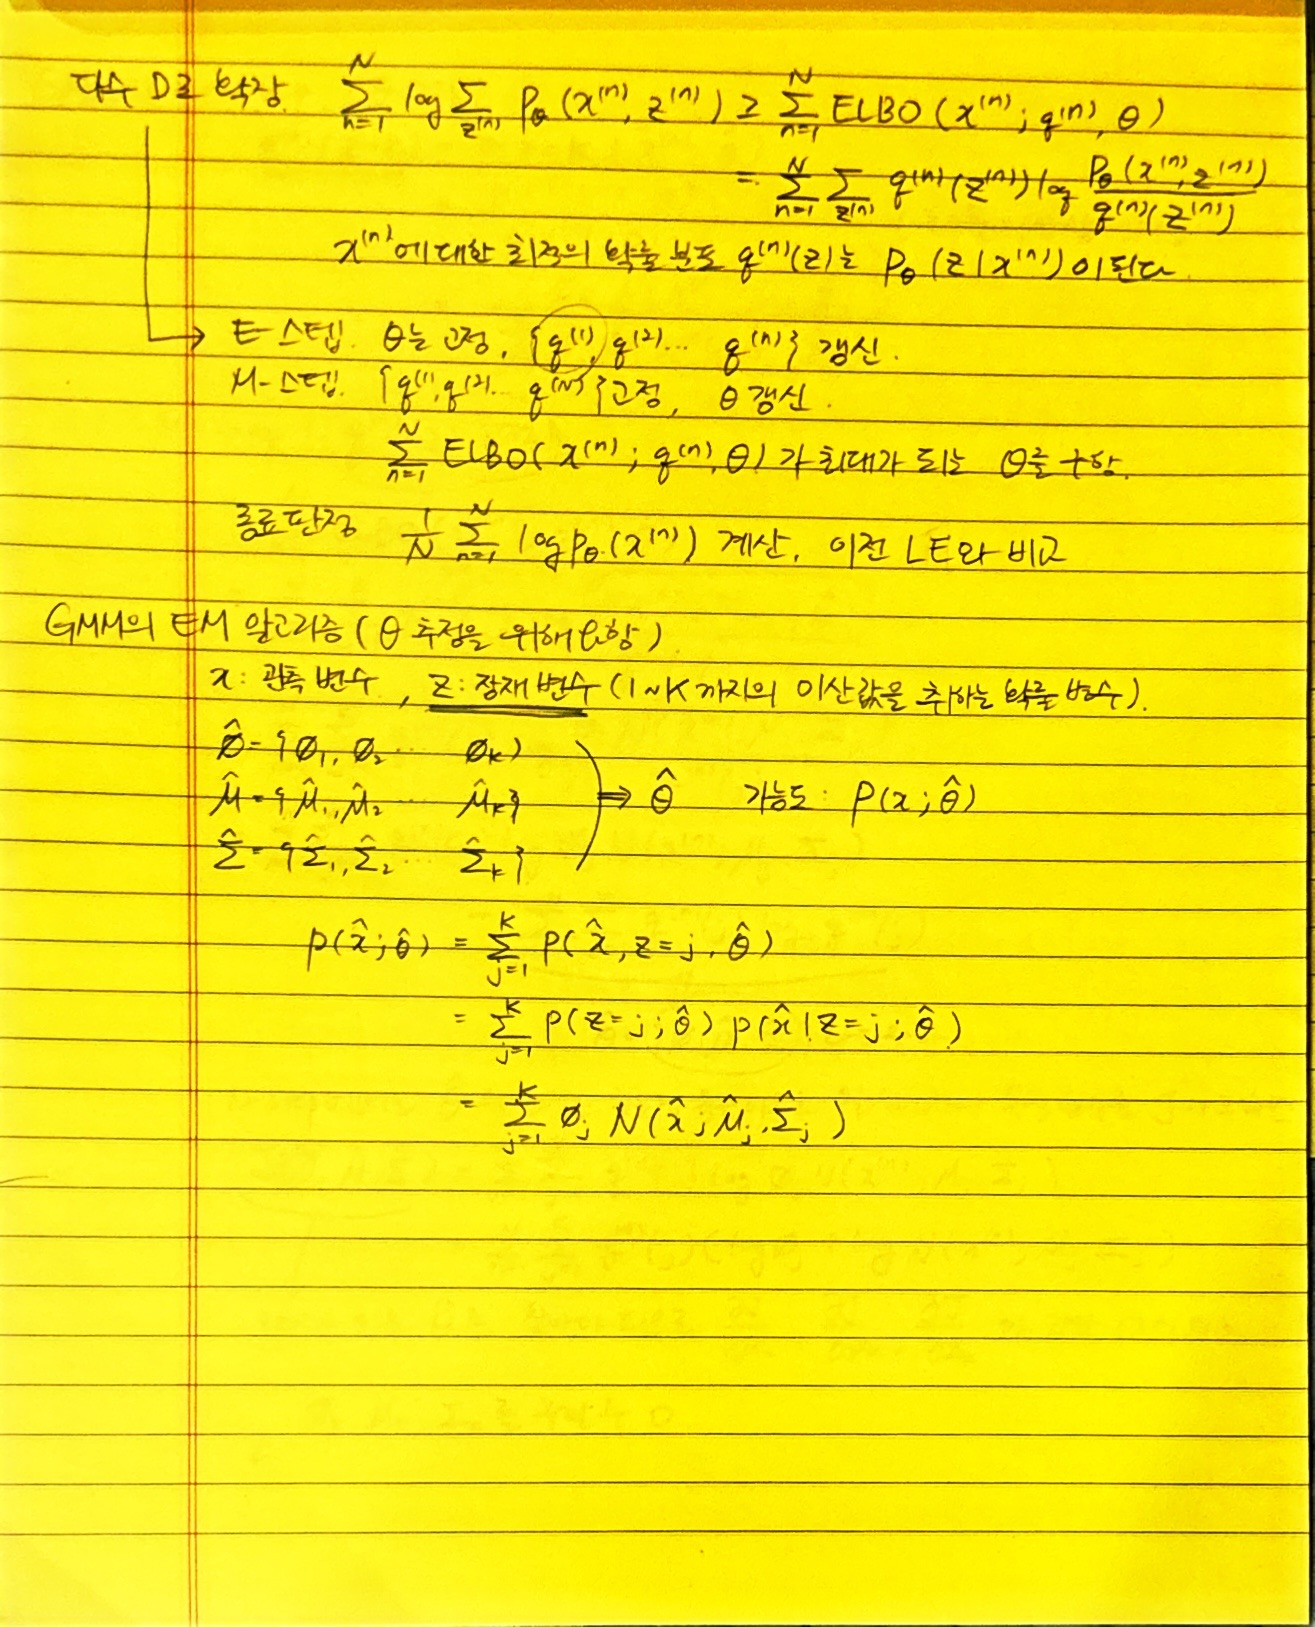 다수 D로 확장. $\sum_{n=1}^{N} \log \sum_{z^{(n)}} P_\theta(x^{(n)}, z^{(n)}) \geq \sum_{n=1}^{N} ELBO(x^{(n)}; q^{(n)}, \theta)$
$= \sum_{n=1}^{N} \sum_{z^{(n)}} q^{(n)}(z^{(n)}) \log \frac{P_\theta(x^{(n)}, z^{(n)})}{q^{(n)}(z^{(n)})}$
$x^{(n)}$에 대한 최적의 확률 분포 $q^{(n)}(z)$는 $P_\theta(z|x^{(n)})$이 된다.
→ E-스텝. θ는 고정, $\{q^{(1)}, q^{(2)} \cdots q^{(n)}\}$ 갱신.
M-스텝. $\{q^{(1)}, q^{(2)} \cdots q^{(N)}\}$ 고정, θ 갱신.
$\sum_{n=1}^{N} ELBO(x^{(n)}; q^{(n)}, \theta)$가 최대가 되는 θ를 구함.
종료판정 $\frac{1}{N} \sum_{n=1}^{N} \log P_\theta(x^{(n)})$ 계산, 이전 LE와 비교
GMM의 EM 알고리즘 (θ 추정을 위해 함)
x: 관측 변수, z: 잠재변수 (1~K 까지의 이산값을 취하는 확률 변수).
$\hat{\phi} = \{\phi_1, \phi_2 \cdots \phi_k\}$
$\hat{\mu} = \{\hat{\mu}_1, \hat{\mu}_2 \cdots \hat{\mu}_k\}$ ⇒ $\hat{\theta}$ 가능도: $P(x; \hat{\theta})$
$\hat{\Sigma} = \{\hat{\Sigma}_1, \hat{\Sigma}_2 \cdots \hat{\Sigma}_k\}$
$p(\hat{x}; \hat{\theta}) = \sum_{j=1}^{K} P(\hat{x}, z=j, \hat{\theta})$
$= \sum_{j=1}^{K} P(z=j; \hat{\theta}) p(\hat{x} | z=j; \hat{\theta})$
$= \sum_{j=1}^{K} \phi_j N(\hat{x}; \hat{\mu}_j, \hat{\Sigma}_j)$